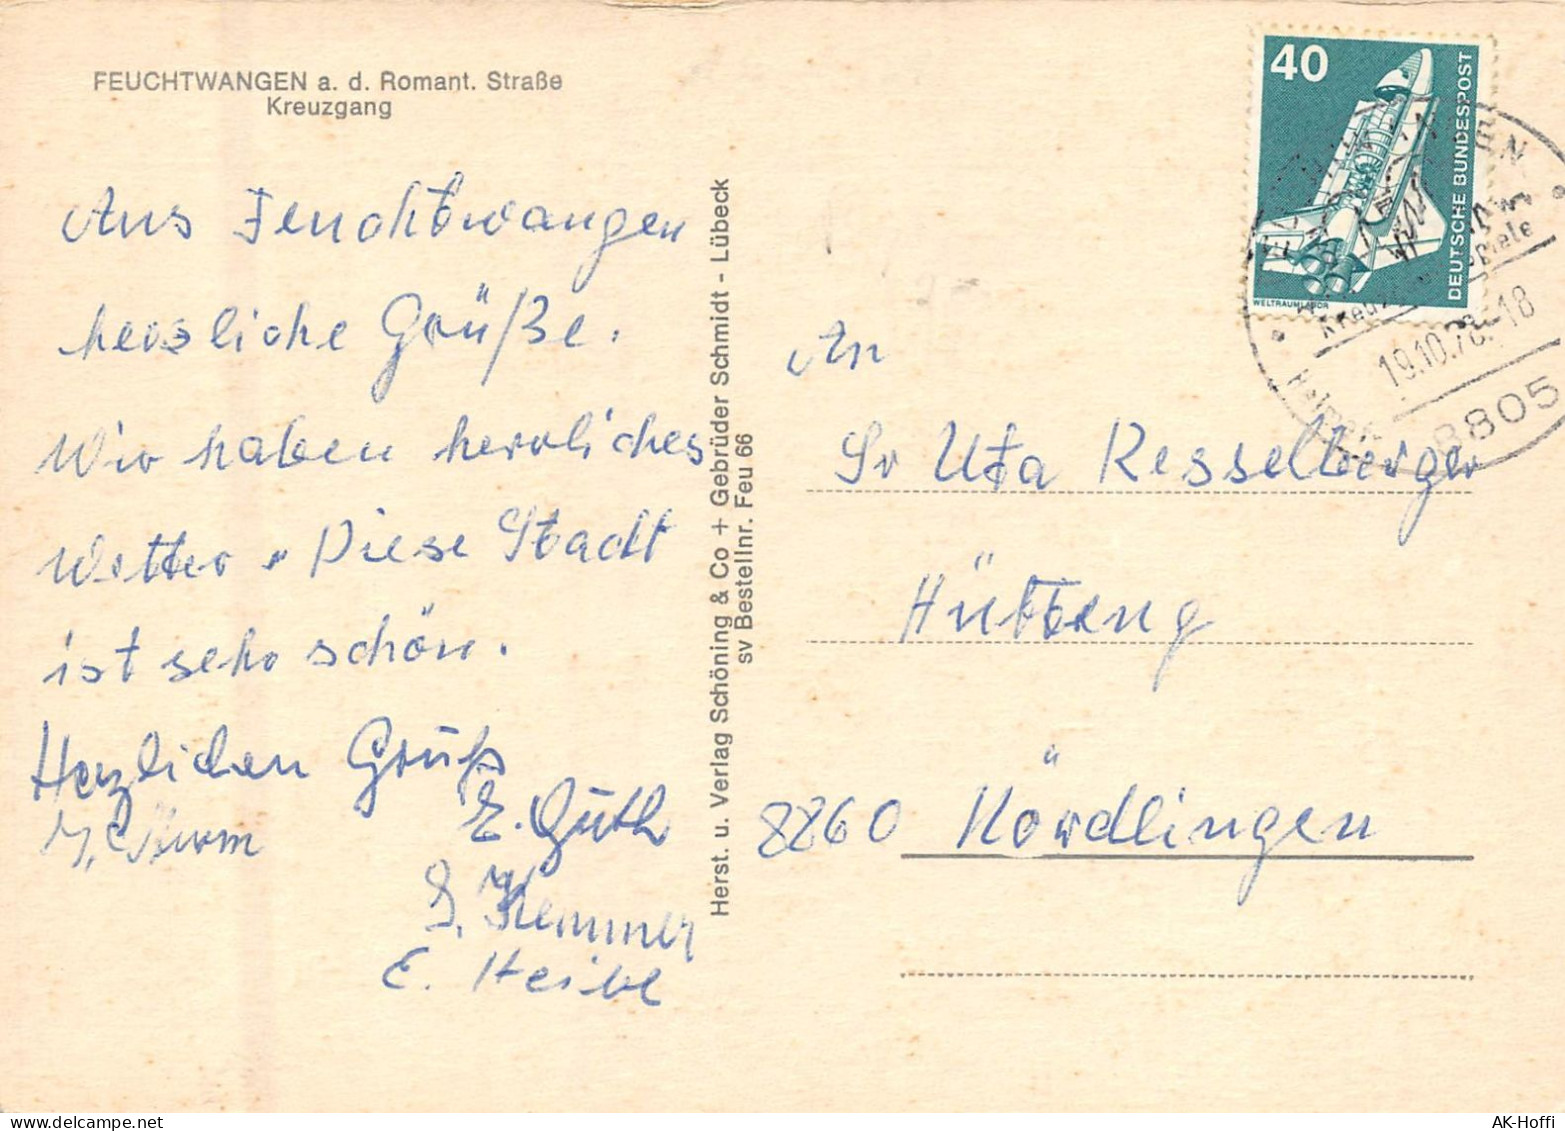 FEUCHTWANGEN a. d. Romant. Straße
Kreuzgang
Aus Feuchtwangen
herzliche Grüße.
Wir haben herrliches
Wetter. Diese Stadt
ist sehr schön.
Herzlichen Gruß
E. Güth
E. Heibl
Herst. u. Verlag Schöning & Co + Gebrüder Schmidt - Lübeck
sv Bestellnr. Feu 66
40
DEUTSCHE BUNDESPOST
WELTRAUMLABOR
19.10.78.-18
8805
An
Sr Uta Kesselberger
Hütteng
8860 Nördlingen
delcampe.net
AK-Hoffi